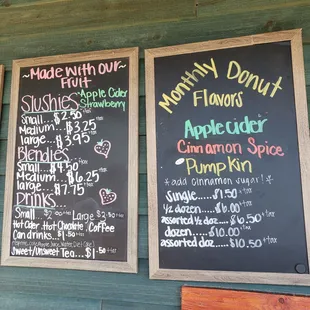 ~Made with our~
Fruit
Slushies
Apple Cider
Strawberry
Small...$2.50 +tax
Medium...$3.25 +tax
large...$3.95 +tax
Blendies
Small...$4.50
Medium...$6.25
large...$7.75
Drinks...
Small $2.00 +tax Large $2.50 +tax
Hot Cider, Hot Chocolate, Coffee
Can drinks..$1.50 +tax
Sweet/Unsweet Tea...$1.50 +tax
Monthly Donut
Flavors
Apple cider
Cinnamon Spice
Pumpkin
*add cinnamon sugar!*
Single.....$1.50 +tax
½ dozen....$6.00 +tax
½ dozen assorted....$6.50 +tax
dozen.....$10.00 +tax
assorted doz...$10.50 +tax